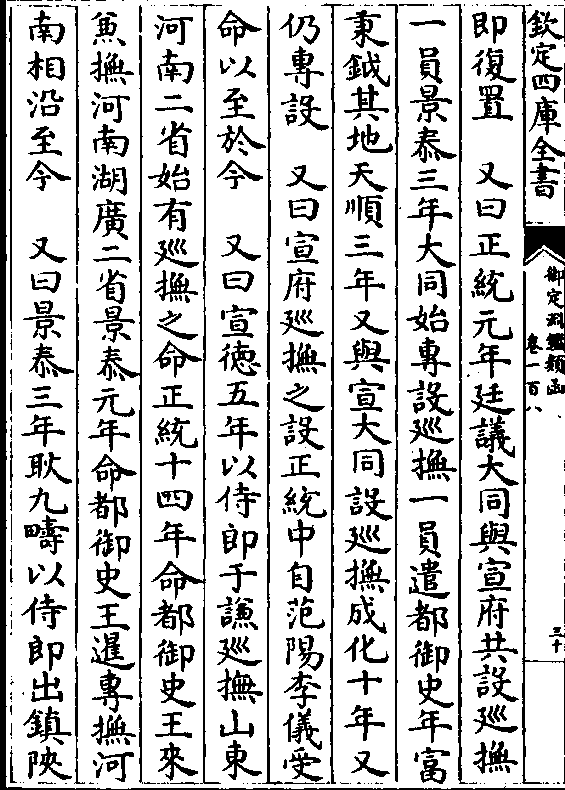 欽定四庫全書
御定淵鑑類函
卷一百八
三十
即復置　又曰正統元年廷議大同與宣府共設廵撫
一員景泰三年大同始專設廵撫一員遣都御史年富
秉鉞其地天順三年又與宣大同設廵撫成化十年又
仍專設　又曰宣府廵撫之設正統中自范陽李儀受
命以至於今　又曰宣徳五年以侍郎于謙廵撫山東
河南二省始有廵撫之命正統十四年命都御史王來
兼撫河南湖廣二省景泰元年命都御史王暹專撫河
南相沿至今　又曰景泰三年耿九疇以侍郎出鎮陜